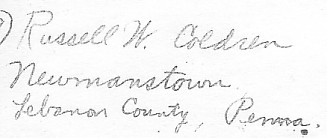 ) Russell W. Coldren
Newmanstown
Lebanon County, Penna.